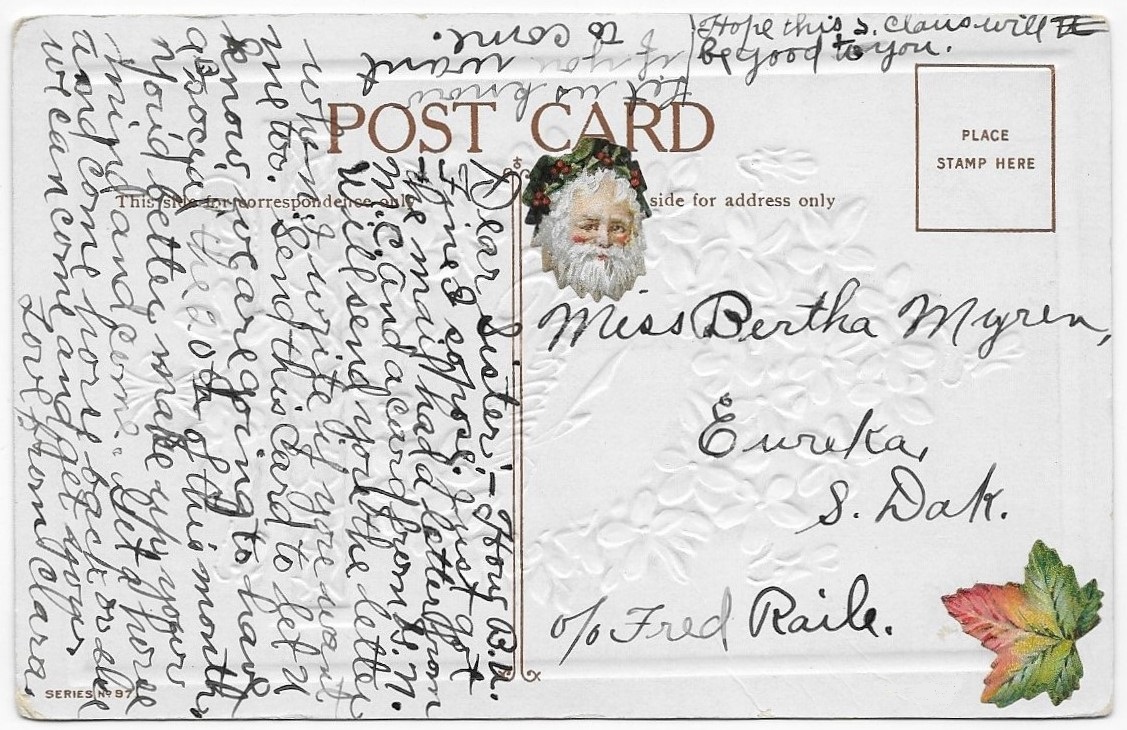 Hope this S. Claus will
be good to you.
Let us know
if you want
to come.
POST CARD
PLACE
STAMP HERE
This side for correspondence only
side for address only
Miss Bertha Myren,
Eureka,
S. Dak.
c/o Fred Raile.
Dear Sister:- How B.U.
Fine I suppose. Just got
the mail had a letter from
Mc. and a card from
Will send you the letter
when I write if you want
me too. Send this card to let U
know we are going to have
a social the 20th of this month,
you'd better make up your
mind and come. Get
and come
we can come and get you.
Love from Clara.
SERIES No 97